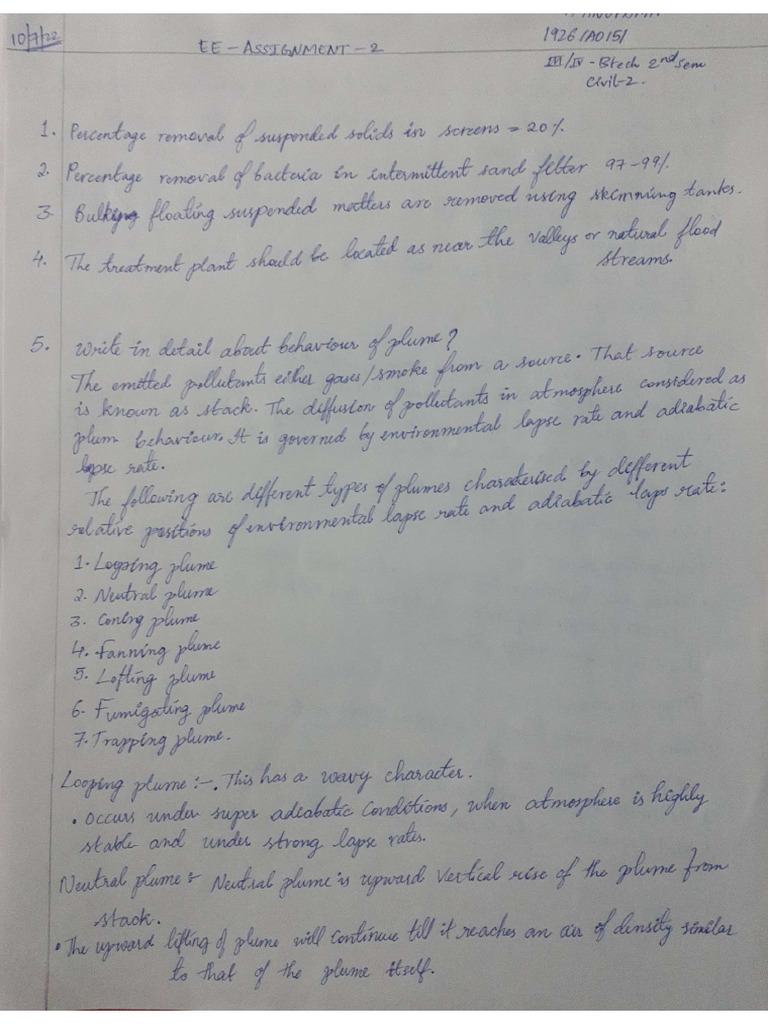 10/7/22
1926/A0151
EE - ASSIGNMENT - 2
III/IV - Btech 2nd sem
Civil-2.
1. Percentage removal of suspended solids in screens = 20%.
2. Percentage removal of bacteria in intermittent sand filter 97-99%.
3. floating suspended matters are removed using skimming tanks.
4. The treatment plant should be located as near the valleys or natural flood
streams.
5. Write in detail about behaviour of plume?
The emitted pollutants either gases/smoke from a source. That source
is known as stack. The diffusion of pollutants in atmosphere considered as
plum behaviour. It is governed by environmental lapse rate and adiabatic
lapse rate.
The following are different types of plumes charaterised by different
relative positions of environmental lapse rate and adiabatic laps rate:
1. Looping plume
2. Neutral plume
3. Coning plume
4. Fanning plume
5. Lofting plume
6. Fumigating plume
7. Trapping plume.
Looping plume :-. This has a wavy character.
• Occurs under super adiabatic conditions, when atmosphere is highly
stable and under strong lapse rates.
Neutral plume :- Neutral plume is upward vertical rise of the plume from
stack.
• The upward lifting of plume will continue till it reaches an air of density similar
to that of the plume itself.